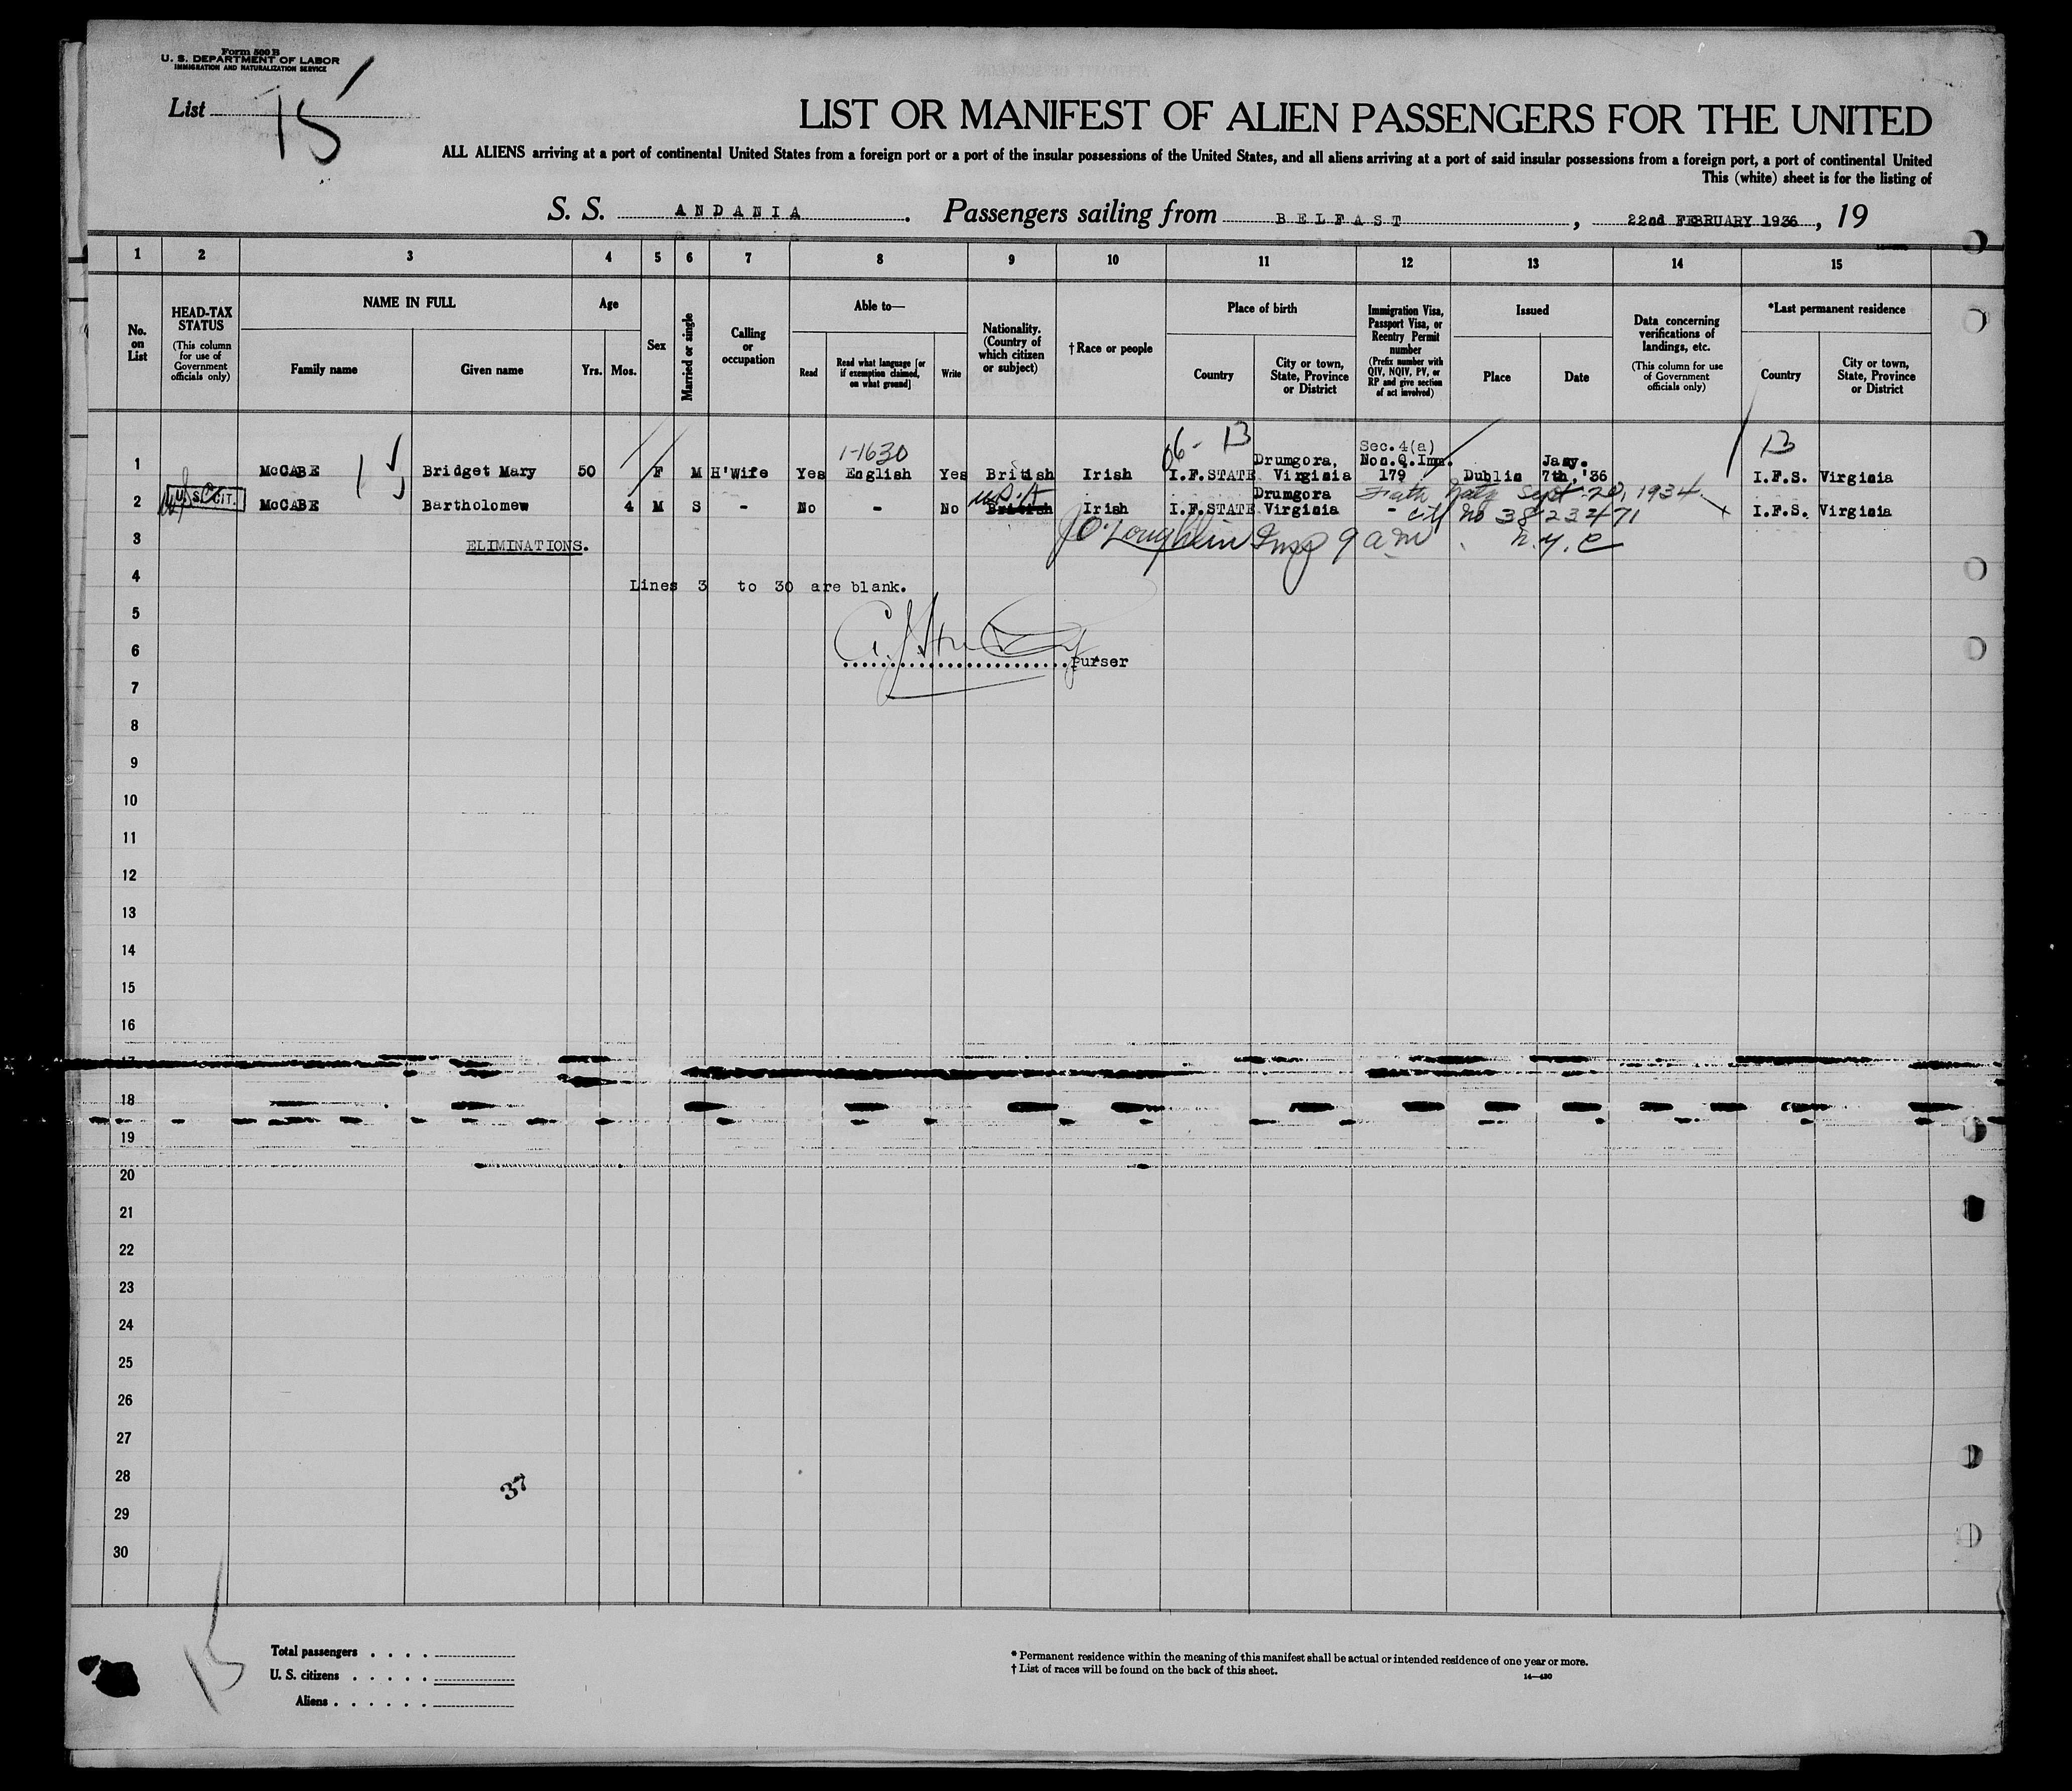 Form 500 B
U. S. DEPARTMENT OF LABOR
IMMIGRATION AND NATURALIZATION SERVICE
List 15
LIST OR MANIFEST OF ALIEN PASSENGERS FOR THE UNITED
ALL ALIENS arriving at a port of continental United States from a foreign port or a port of the insular possessions of the United States, and all aliens arriving at a port of said insular possessions from a foreign port, a port of continental United
This (white) sheet is for the listing of
S. S. ANDANIA. Passengers sailing from BELFAST, 22nd FEBRUARY 1936, 19
1 2 3 4 5 6 7 8 9 10 11 12 13 14 15
No. on List
HEAD-TAX STATUS
(This column for use of Government officials only)
NAME IN FULL
Family name
Given name
Age
Yrs. Mos.
Sex
Married or single
Calling or occupation
Able to—
Read
Read what language [or if exemption claimed, on what ground]
Write
Nationality. (Country of which citizen or subject)
†Race or people
Place of birth
Country
City or town, State, Province or District
Immigration Visa, Passport Visa, or Reentry Permit number
(Prefix number with QIV, NQIV, PV, or RP and give section of act involved)
Issued
Place
Date
Data concerning verifications of landings, etc.
(This column for use of Government officials only)
*Last permanent residence
Country
City or town, State, Province or District
1-1630 06- 13 Sec.4(a) 13
Drumgora, Non.Q.Imm. Jany.
1 McCABE Bridget Mary 50 F M H'Wife Yes English Yes British Irish I.F.STATE Virginia 179 Dublin 7th,'36 I.F.S. Virginia
U.S. CIT. Drumgora Fath Natz Sept 20, 1934
2 McCABE Bartholomew 4 M S - No - No British Irish I.F.STATE Virginia - ctf No 3823471 I.F.S. Virginia
3 ELIMINATIONS. J O'Loughlin Insp 9 am N.Y.C
4 Lines 3 to 30 are blank.
5
6 Purser
7
8
9
10
11
12
13
14
15
16
17
18
19
20
21
22
23
24
25
26
27
28 37
29
30
15
Total passengers . . . .
U. S. citizens . . . . .
Aliens . . . . . .
* Permanent residence within the meaning of this manifest shall be actual or intended residence of one year or more.
† List of races will be found on the back of this sheet.
14—430